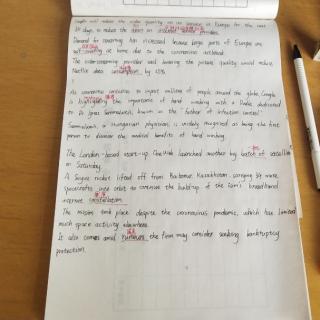 Google will reduce the video quality on its service in Europe for the next
30 days, to reduce the strain on internet service providers.
Demand for streaming has increased because large parts of Europe are
at home due to the coronavirus outbreak.
The video-streaming provider said lowering the picture quality would reduce
Netflix data consumption by 25%.
As coronavirus continues to impact millions of people around the globe, Google
is highlighting the importance of hand washing with a Doodle dedicated
to Dr Ignaz Semmelweis, known as the father of infection control.
Semmelweis, a Hungarian physician, is widely recognized as being the first
person to discover the medical benefits of hand washing.
The London-based start-up OneWeb launched another big batch of satellites
on Saturday.
A Soyuz rocket lifted off from Baikonur, Kazakhstan, carrying 34 more
spacecrafts into orbit to continue the build-up of the firm's broadband
internet constellation.
The mission took place despite the coronavirus pandemic, which has limited
much space activity elsewhere.
It also comes amid rumours the firm may consider seeking bankruptcy
protection.